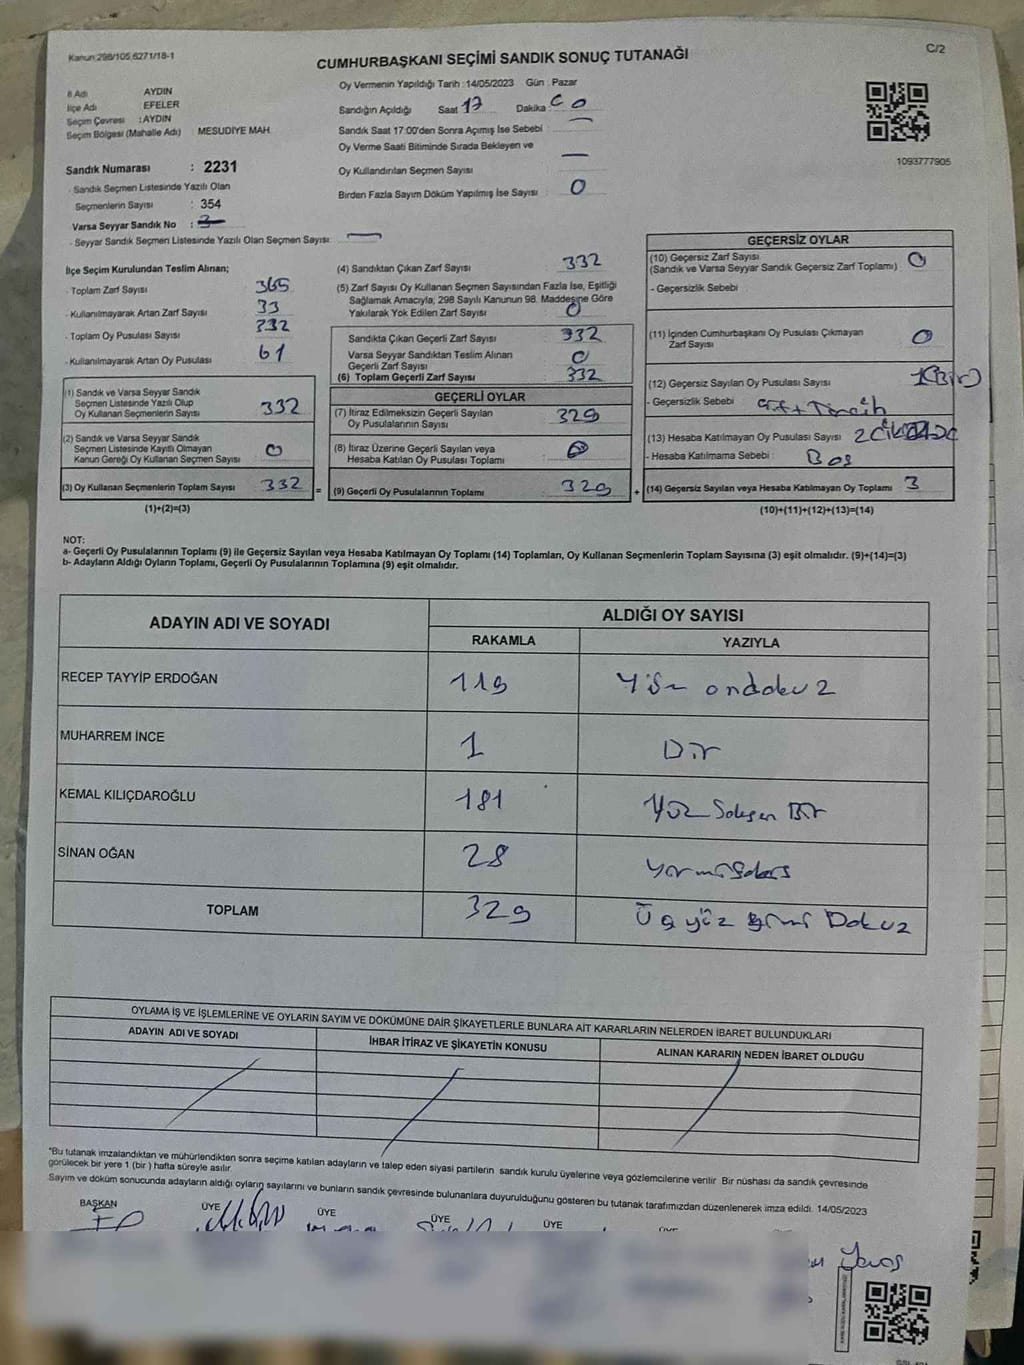 Kanun:298/105,6271/18-1
C/2
CUMHURBAŞKANI SEÇİMİ SANDIK SONUÇ TUTANAĞI
İl Adı AYDIN
İlçe Adı EFELER
Seçim Çevresi : AYDIN
Seçim Bölgesi (Mahalle Adı) : MESUDİYE MAH.
Sandık Numarası : 2231
- Sandık Seçmen Listesinde Yazılı Olan
Seçmenlerin Sayısı : 354
Varsa Seyyar Sandık No :
- Seyyar Sandık Seçmen Listesinde Yazılı Olan Seçmen Sayısı:
Oy Vermenin Yapıldığı Tarih :14/05/2023 Gün : Pazar
Sandığın Açıldığı Saat 17 Dakika
Sandık Saat 17:00'den Sonra Açımış İse Sebebi :
Oy Verme Saati Bitiminde Sırada Bekleyen ve
Oy Kullandırılan Seçmen Sayısı
Birden Fazla Sayım Döküm Yapılmış İse Sayısı : 0
1093777905
İlçe Seçim Kurulundan Teslim Alınan;
- Toplam Zarf Sayısı : 365
- Kullanılmayarak Artan Zarf Sayısı : 33
- Toplam Oy Pusulası Sayısı :
- Kullanılmayarak Artan Oy Pusulası : 61
(1) Sandık ve Varsa Seyyar Sandık
Seçmen Listesinde Yazılı Olup
Oy Kullanan Seçmenlerin Sayısı : 332
(2) Sandık ve Varsa Seyyar Sandık
Seçmen Listesinde Kayıtlı Olmayan
Kanun Gereği Oy Kullanan Seçmen Sayısı : 0
(3) Oy Kullanan Seçmenlerin Toplam Sayısı : 332 =
(1)+(2)=(3)
(4) Sandıktan Çıkan Zarf Sayısı : 332
(5) Zarf Sayısı Oy Kullanan Seçmen Sayısından Fazla İse, Eşitliği
Sağlamak Amacıyla, 298 Sayılı Kanunun 98. Maddesine Göre
Yakılarak Yok Edilen Zarf Sayısı : 0
Sandıkta Çıkan Geçerli Zarf Sayısı : 332
Varsa Seyyar Sandıktan Teslim Alınan
Geçerli Zarf Sayısı : 0
(6) Toplam Geçerli Zarf Sayısı : 332
GEÇERLİ OYLAR
(7) İtiraz Edilmeksizin Geçerli Sayılan
Oy Pusulalarının Sayısı : 329
(8) İtiraz Üzerine Geçerli Sayılan veya
Hesaba Katılan Oy Pusulası Toplamı : 0
(9) Geçerli Oy Pusulalarının Toplamı : 329 +
GEÇERSİZ OYLAR
(10) Geçersiz Zarf Sayısı
(Sandık ve Varsa Seyyar Sandık Geçersiz Zarf Toplamı) : 0
- Geçersizlik Sebebi :
(11) İçinden Cumhurbaşkanı Oy Pusulası Çıkmayan
Zarf Sayısı : 0
(12) Geçersiz Sayılan Oy Pusulası Sayısı : 1(Bir)
- Geçersizlik Sebebi : Çift Tercih
(13) Hesaba Katılmayan Oy Pusulası Sayısı : 2
- Hesaba Katılmama Sebebi : Boş
(14) Geçersiz Sayılan veya Hesaba Katılmayan Oy Toplamı : 3
(10)+(11)+(12)+(13)=(14)
NOT:
a- Geçerli Oy Pusulalarının Toplamı (9) ile Geçersiz Sayılan veya Hesaba Katılmayan Oy Toplamı (14) Toplamları, Oy Kullanan Seçmenlerin Toplam Sayısına (3) eşit olmalıdır. (9)+(14)=(3)
b- Adayların Aldığı Oyların Toplamı, Geçerli Oy Pusulalarının Toplamına (9) eşit olmalıdır.
ADAYIN ADI VE SOYADI
ALDIĞI OY SAYISI
RAKAMLA YAZIYLA
RECEP TAYYİP ERDOĞAN 119 Yüz ondokuz
MUHARREM İNCE 1 Bir
KEMAL KILIÇDAROĞLU 181 Yüz Seksen Bir
SİNAN OĞAN 28 Yirmi Sekiz
TOPLAM 329 Üç yüz yirmi Dokuz
OYLAMA İŞ VE İŞLEMLERİNE VE OYLARIN SAYIM VE DÖKÜMÜNE DAİR ŞİKAYETLERLE BUNLARA AİT KARARLARIN NELERDEN İBARET BULUNDUKLARI
ADAYIN ADI VE SOYADI İHBAR İTİRAZ VE ŞİKAYETİN KONUSU ALINAN KARARIN NEDEN İBARET OLDUĞU
*Bu tutanak imzalandıktan ve mühürlendikten sonra seçime katılan adayların ve talep eden siyasi partilerin sandık kurulu üyelerine veya gözlemcilerine verilir Bir nüshası da sandık çevresinde
görülecek bir yere 1 (bir ) hafta süreyle asılır.
Sayım ve döküm sonucunda adayların aldığı oyların sayılarını ve bunların sandık çevresinde bulunanlara duyurulduğunu gösteren bu tutanak tarafımızdan düzenlenerek imza edildi. 14/05/2023
BAŞKAN ÜYE ÜYE ÜYE ÜYE